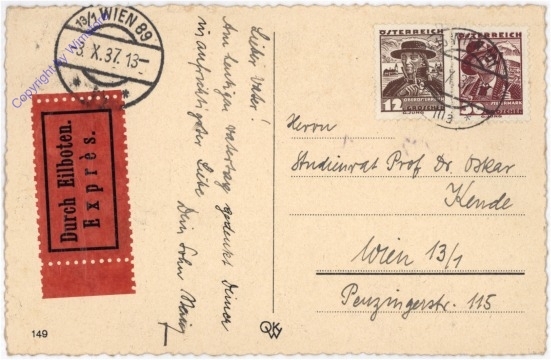 13/1 WIEN 89
3. X. 37. 13-
Copyright by
Durch Eilboten.
Exprès.
149
Lieber Vater!
Am heutigen Vatertag gedenkt Deiner
in aufrichtiger Liebe
Dein Sohn
ÖSTERREICH
12
GROSCHEN
ÖSTERREICH
GROSCHEN
Herrn
Studienrat Prof. Dr. Oskar
Kende
Wien 13/1
Penzingerstr. 115